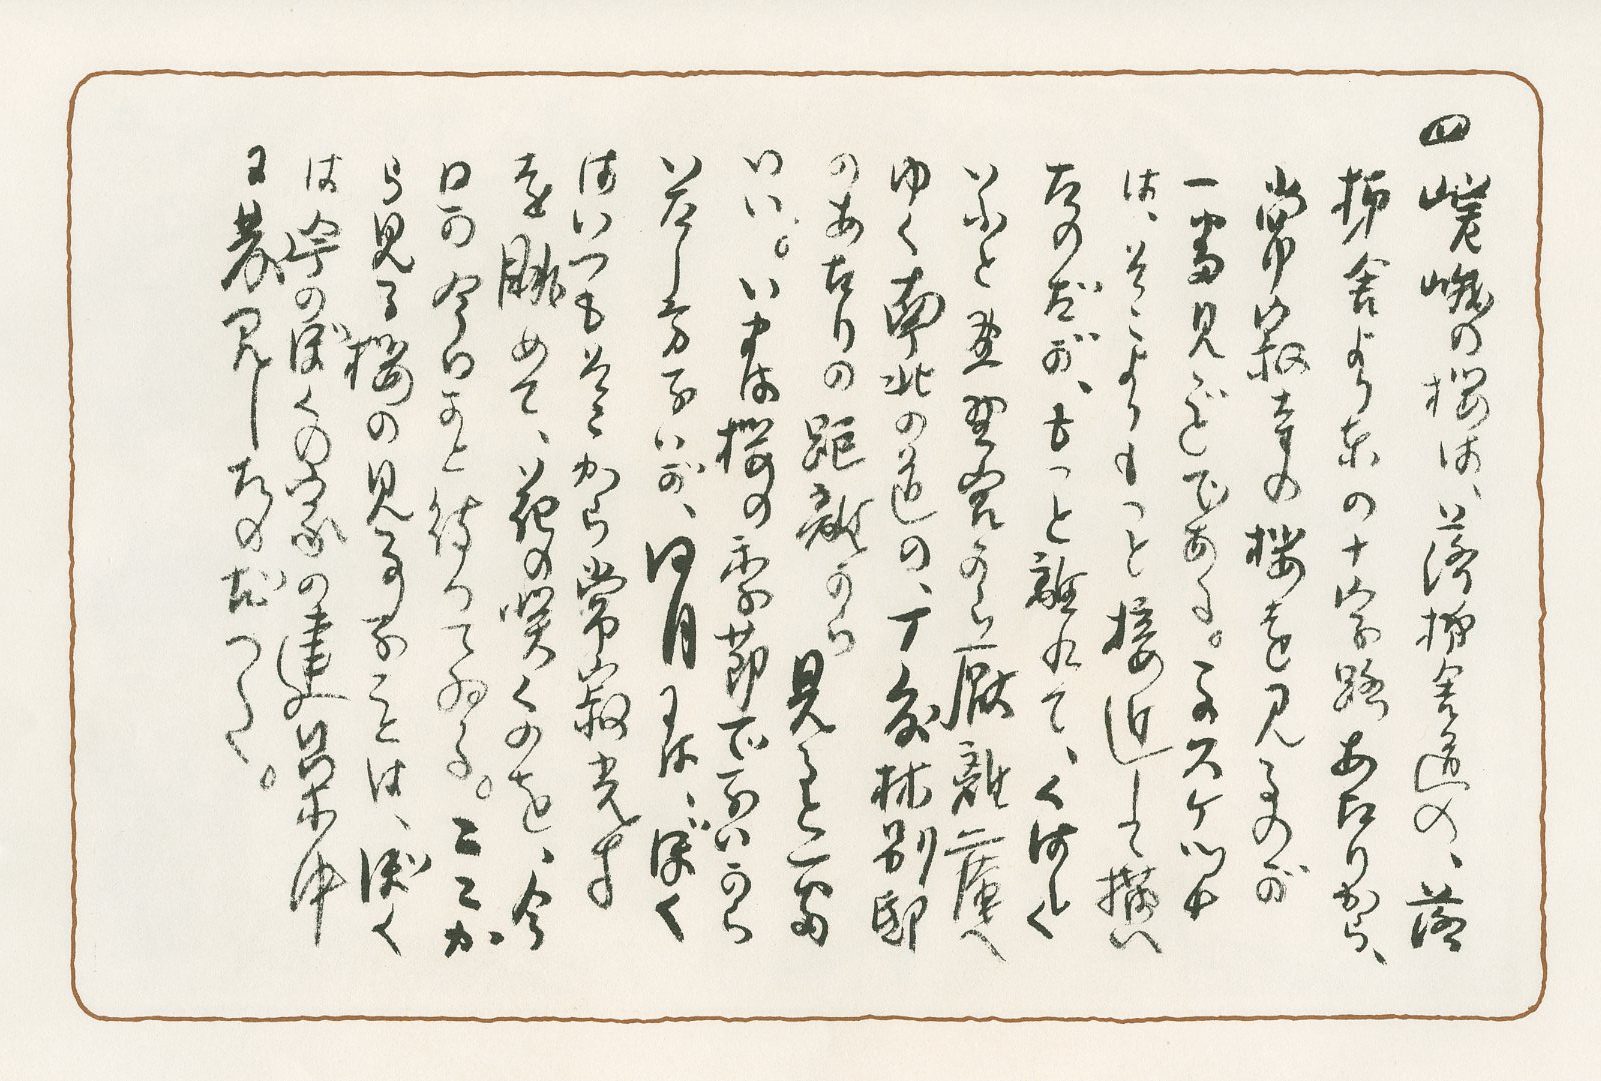 四 嵯峨の桜は、落柿舎道の、落
柿舎より東の十字路あたりから、
常寂寺の桜を見るのが
一番見ごとである。このスケッチ
は、そこよりもっと接近して描い
たのだが、もっと離れて、くはしく
いふと
ゆく南北の道の、丁度林別邸
のあたりの距離から見ると一番
いい。いまは桜の季節でないから
いたし方ないが、四月には、ぼく
はいつもそこから常寂光寺
を眺めて、花の咲くのを、今
日か今日かと待つてゐる。ここか
ら見る桜の見事なことは、ぼく
は今度のぼくの家の建築中
に発見したのだつた。